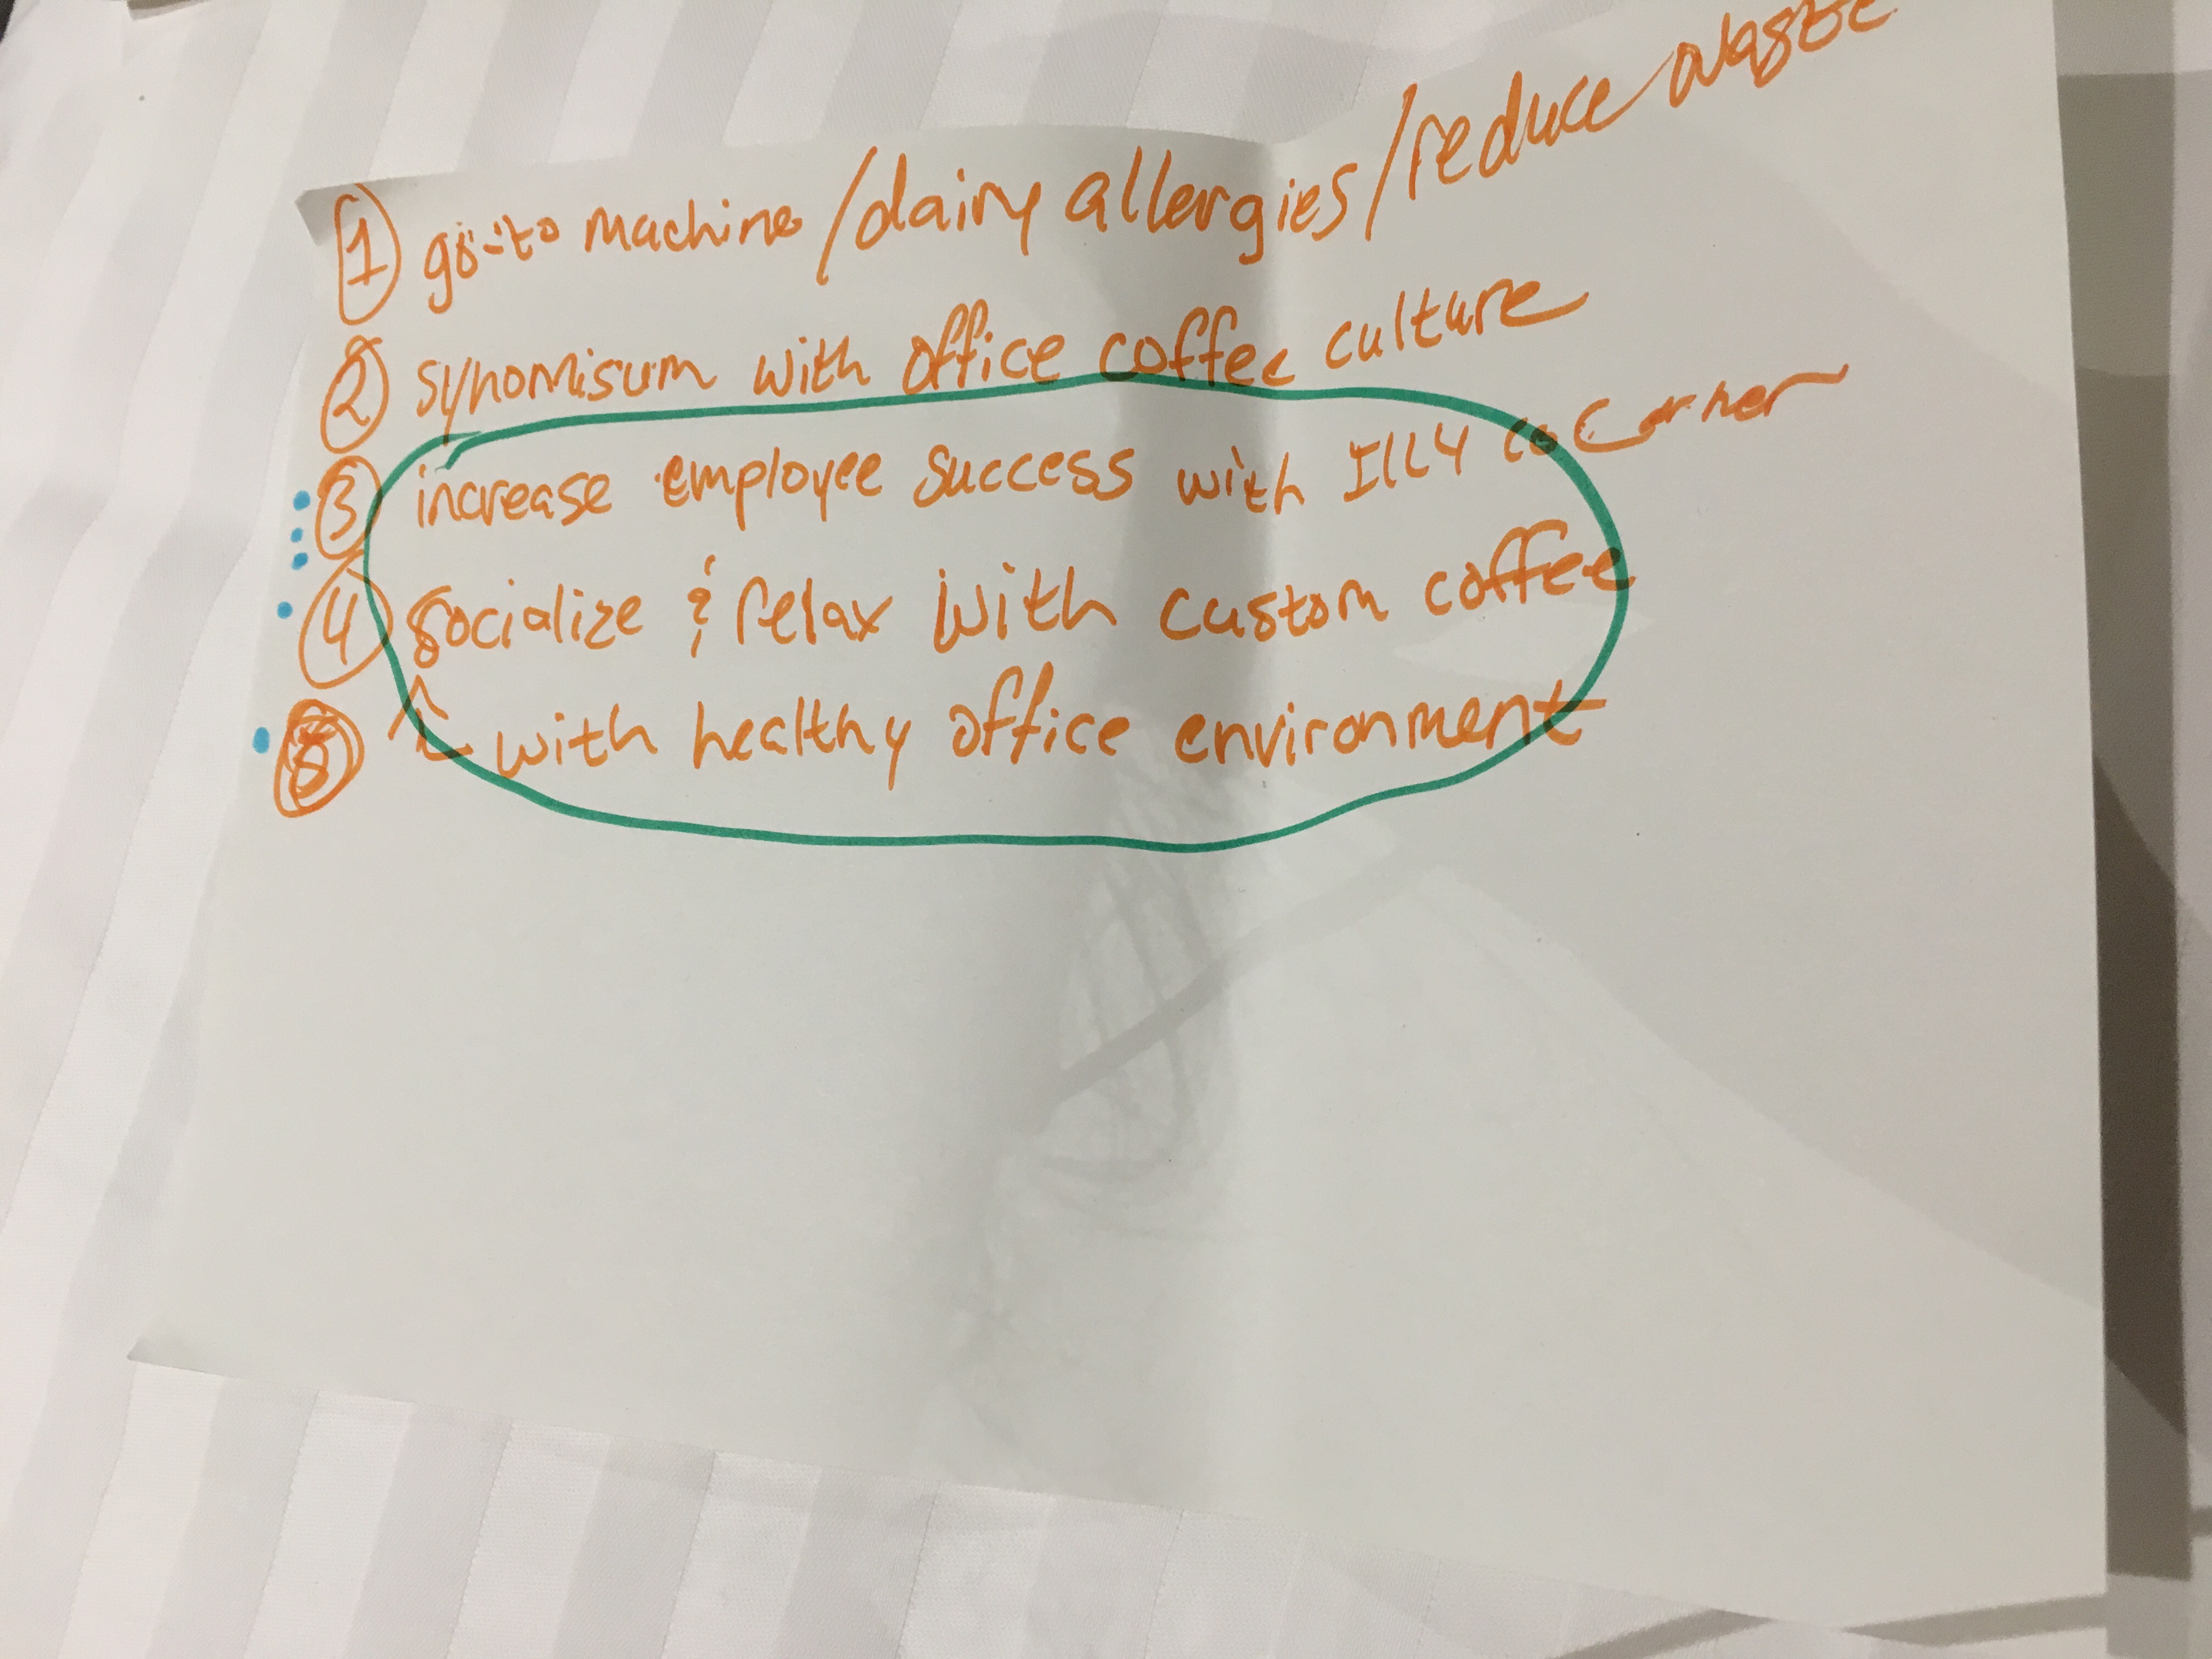 ① go-to machine/dairy allergies/reduce waste
② synomisum with office coffee culture
③ increase employee success with ILLY co Corner
④ Socialize & relax with custom coffee
⑤ with healthy office environment